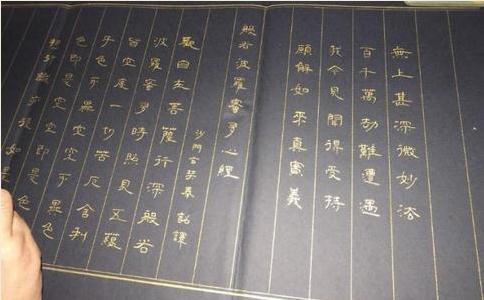 無上甚深微妙法
百千萬劫難遭遇
我今見聞得受持
願解如來真實義
般若波羅蜜多心經
沙門玄奘奉詔譯
觀自在菩薩行深般若
波羅蜜多時照見五蘊
皆空度一切苦厄舍利
子色不異空空不異色
色即是空空即是色
想行識亦復如是